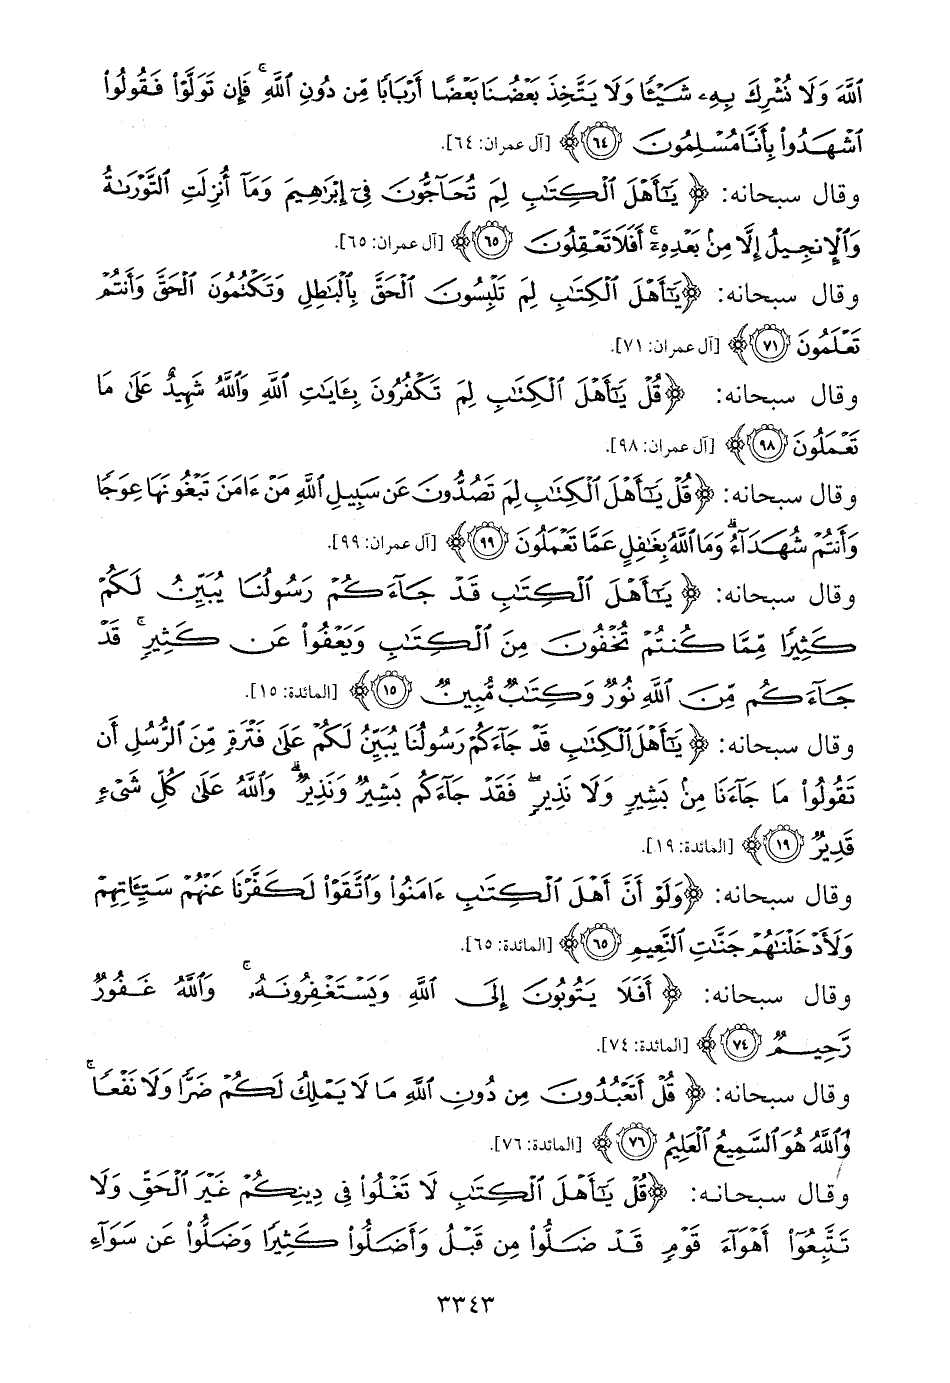 ٱللَّهَ وَلَا نُشْرِكَ بِهِۦ شَيْـًٔا وَلَا يَتَّخِذَ بَعْضُنَا بَعْضًا أَرْبَابًا مِّن دُونِ ٱللَّهِ ۚ فَإِن تَوَلَّوْا۟ فَقُولُوا۟
ٱشْهَدُوا۟ بِأَنَّا مُسْلِمُونَ ٦٤﴾ [آل عمران: ٦٤].
وقال سبحانه: ﴿يَـٰٓأَهْلَ ٱلْكِتَـٰبِ لِمَ تُحَآجُّونَ فِىٓ إِبْرَٰهِيمَ وَمَآ أُنزِلَتِ ٱلتَّوْرَىٰةُ
وَٱلْإِنجِيلُ إِلَّا مِنۢ بَعْدِهِۦٓ ۚ أَفَلَا تَعْقِلُونَ ٦٥﴾ [آل عمران: ٦٥].
وقال سبحانه: ﴿يَـٰٓأَهْلَ ٱلْكِتَـٰبِ لِمَ تَلْبِسُونَ ٱلْحَقَّ بِٱلْبَـٰطِلِ وَتَكْتُمُونَ ٱلْحَقَّ وَأَنتُمْ
تَعْلَمُونَ ٧١﴾ [آل عمران: ٧١].
وقال سبحانه: ﴿قُلْ يَـٰٓأَهْلَ ٱلْكِتَـٰبِ لِمَ تَكْفُرُونَ بِـَٔايَـٰتِ ٱللَّهِ وَٱللَّهُ شَهِيدٌ عَلَىٰ مَا
تَعْمَلُونَ ٩٨﴾ [آل عمران: ٩٨].
وقال سبحانه: ﴿قُلْ يَـٰٓأَهْلَ ٱلْكِتَـٰبِ لِمَ تَصُدُّونَ عَن سَبِيلِ ٱللَّهِ مَنْ ءَامَنَ تَبْغُونَهَا عِوَجًا
وَأَنتُمْ شُهَدَآءُ ۗ وَمَا ٱللَّهُ بِغَـٰفِلٍ عَمَّا تَعْمَلُونَ ٩٩﴾ [آل عمران: ٩٩].
وقال سبحانه: ﴿يَـٰٓأَهْلَ ٱلْكِتَـٰبِ قَدْ جَآءَكُمْ رَسُولُنَا يُبَيِّنُ لَكُمْ
كَثِيرًا مِّمَّا كُنتُمْ تُخْفُونَ مِنَ ٱلْكِتَـٰبِ وَيَعْفُوا۟ عَن كَثِيرٍ ۚ قَدْ
جَآءَكُم مِّنَ ٱللَّهِ نُورٌ وَكِتَـٰبٌ مُّبِينٌ ١٥﴾ [المائدة: ١٥].
وقال سبحانه: ﴿يَـٰٓأَهْلَ ٱلْكِتَـٰبِ قَدْ جَآءَكُمْ رَسُولُنَا يُبَيِّنُ لَكُمْ عَلَىٰ فَتْرَةٍ مِّنَ ٱلرُّسُلِ أَن
تَقُولُوا۟ مَا جَآءَنَا مِنۢ بَشِيرٍ وَلَا نَذِيرٍ ۖ فَقَدْ جَآءَكُم بَشِيرٌ وَنَذِيرٌ ۗ وَٱللَّهُ عَلَىٰ كُلِّ شَىْءٍ
قَدِيرٌ ١٩﴾ [المائدة: ١٩].
وقال سبحانه: ﴿وَلَوْ أَنَّ أَهْلَ ٱلْكِتَـٰبِ ءَامَنُوا۟ وَٱتَّقَوْا۟ لَكَفَّرْنَا عَنْهُمْ سَيِّـَٔاتِهِمْ
وَلَأَدْخَلْنَـٰهُمْ جَنَّـٰتِ ٱلنَّعِيمِ ٦٥﴾ [المائدة: ٦٥].
وقال سبحانه: ﴿أَفَلَا يَتُوبُونَ إِلَى ٱللَّهِ وَيَسْتَغْفِرُونَهُۥ ۚ وَٱللَّهُ غَفُورٌ
رَّحِيمٌ ٧٤﴾ [المائدة: ٧٤].
وقال سبحانه: ﴿قُلْ أَتَعْبُدُونَ مِن دُونِ ٱللَّهِ مَا لَا يَمْلِكُ لَكُمْ ضَرًّا وَلَا نَفْعًا ۚ
وَٱللَّهُ هُوَ ٱلسَّمِيعُ ٱلْعَلِيمُ ٧٦﴾ [المائدة: ٧٦].
وقال سبحانه: ﴿قُلْ يَـٰٓأَهْلَ ٱلْكِتَـٰبِ لَا تَغْلُوا۟ فِى دِينِكُمْ غَيْرَ ٱلْحَقِّ وَلَا
تَتَّبِعُوٓا۟ أَهْوَآءَ قَوْمٍ قَدْ ضَلُّوا۟ مِن قَبْلُ وَأَضَلُّوا۟ كَثِيرًا وَضَلُّوا۟ عَن سَوَآءِ
٣٣٤٣